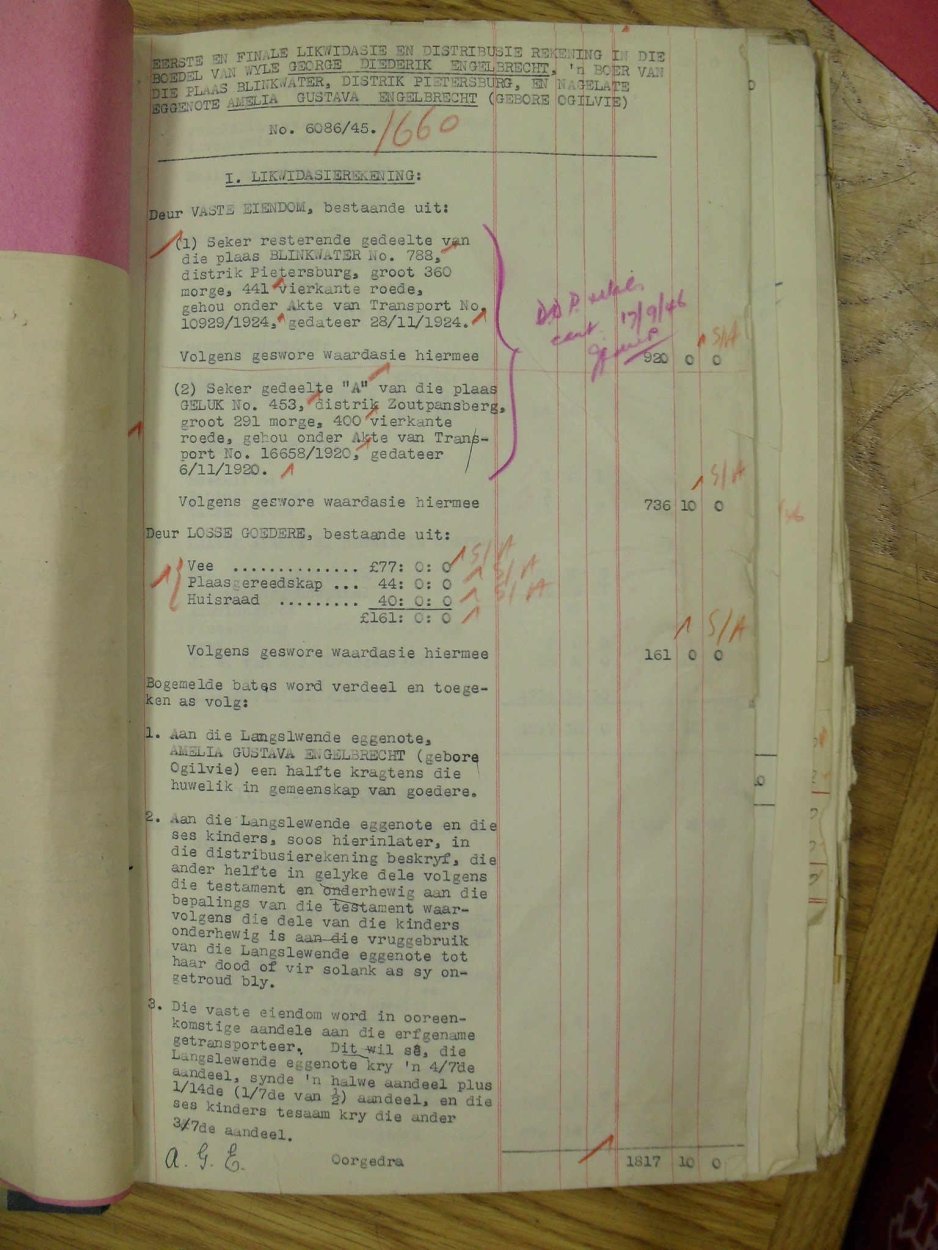 EERSTE EN FINALE LIKWIDASIE EN DISTRIBUSIE REKENING IN DIE
BOEDEL VAN WYLE GEORGE DIEDERIK ENGELBRECHT, 'n BOER VAN
DIE PLAAS BLINKWATER, DISTRIK PIETERSBURG, EN NAGELATE
EGGENOTE AMELIA GUSTAVA ENGELBRECHT (GEBORE OGILVIE)
No. 6086/45. /660
I. LIKWIDASIEREKENING:
Deur VASTE EIENDOM, bestaande uit:
(1) Seker resterende gedeelte van
die plaas BLINKWATER No. 788,
distrik Pietersburg, groot 360
morge, 441 vierkante roede,
gehou onder Akte van Transport No.
10929/1924, gedateer 28/11/1924.
17/9/46
S/A
Volgens geswore waardasie hiermee 920 0 0
(2) Seker gedeelte "A" van die plaas
GELUK No. 453, distrik Zoutpansberg,
groot 291 morge, 400 vierkante
roede, gehou onder Akte van Trans-
port No. 16658/1920, gedateer
6/11/1920.
S/A
Volgens geswore waardasie hiermee 736 10 0
Deur LOSSE GOEDERE, bestaande uit:
Vee .............. £77: 0: 0 S/A
Plaasgereedskap ... 44: 0: 0 S/A
Huisraad ......... 40: 0: 0 S/A
£161: 0: 0
S/A
Volgens geswore waardasie hiermee 161 0 0
Bogemelde bates word verdeel en toege-
ken as volg:
1. Aan die Langslwende eggenote,
AMELIA GUSTAVA ENGELBRECHT (gebore
Ogilvie) een halfte kragtens die
huwelik in gemeenskap van goedere.
2. Aan die Langslewende eggenote en die
ses kinders, soos hierinlater, in
die distribusierekening beskryf, die
ander helfte in gelyke dele volgens
die testament en onderhewig aan die
bepalings van die testament waar-
volgens die dele van die kinders
onderhewig is aan die vruggebruik
van die Langslewende eggenote tot
haar dood of vir solank as sy on-
getroud bly.
3. Die vaste eiendom word in ooreen-
komstige aandele aan die erfgename
getransporteer. Dit wil sê, die
Langslewende eggenote kry 'n 4/7de
aandeel, synde 'n halwe aandeel plus
1/14de (1/7de van ½) aandeel, en die
ses kinders tesaam kry die ander
3/7de aandeel.
A. G. E. Oorgedra 1817 10 0